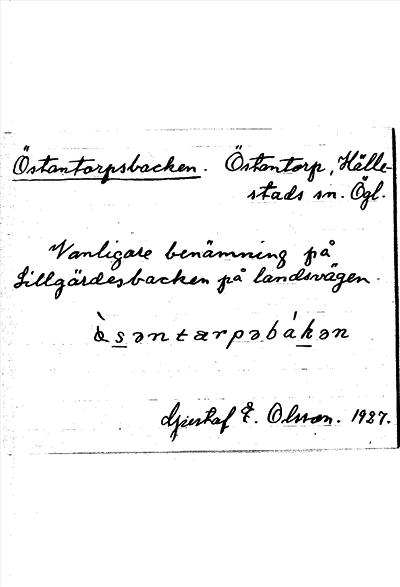 Östantorpsbacken. Östantorp, Hälle-
stads sn. Ögl.
Vanligare benämning på
Lillgärdesbacken på landsvägen.
Gustaf E. Olsson. 1927.